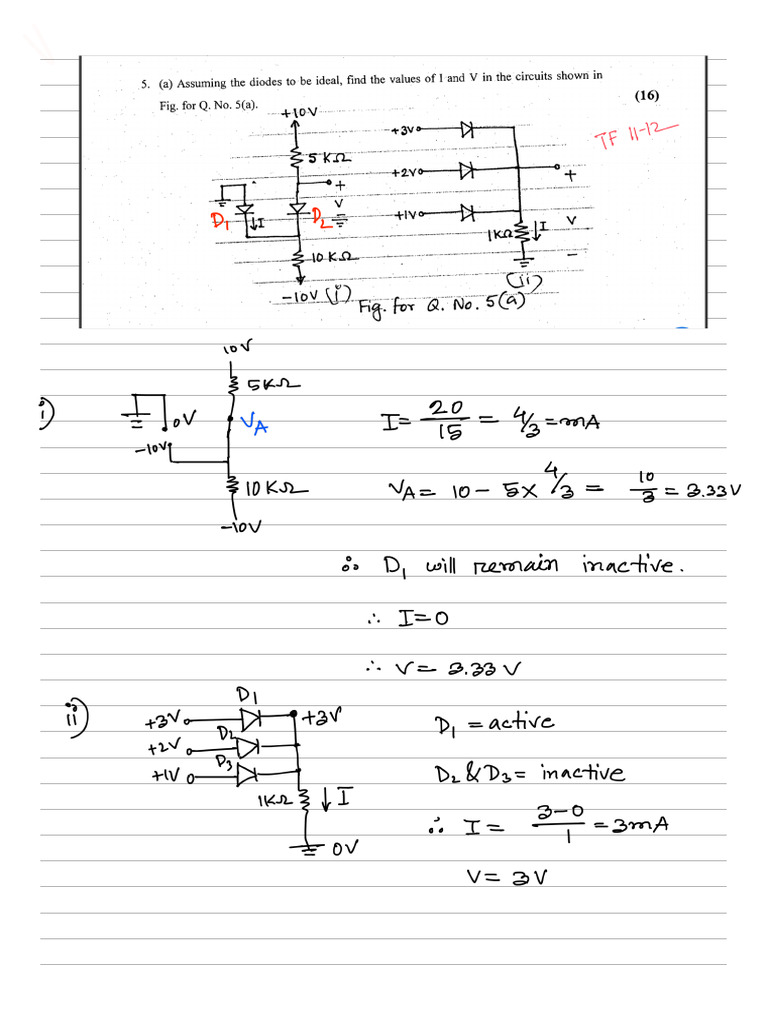 5. (a) Assuming the diodes to be ideal, find the values of I and V in the circuits shown in
Fig. for Q. No. 5(a).
(16)
TF 11-12
+10V
5 KΩ
+
V
D1
I
D2
10 KΩ
-10V (i)
+3V
+2V
+1V
+
V
-
1KΩ
I
(ii)
Fig. for Q. No. 5(a)
i)
10V
5KΩ
0V
VA
-10V
10 KΩ
-10V
I = 20/15 = 4/3 = mA
VA = 10 - 5 × 4/3 = 10/3 = 3.33V
∴ D1 will remain inactive.
∴ I = 0
∴ V = 3.33 V
ii)
D1
+3V
+3V
D2
+2V
D3
+1V
1KΩ
I
0V
D1 = active
D2 & D3 = inactive
∴ I = 3-0/1 = 3mA
V = 3V